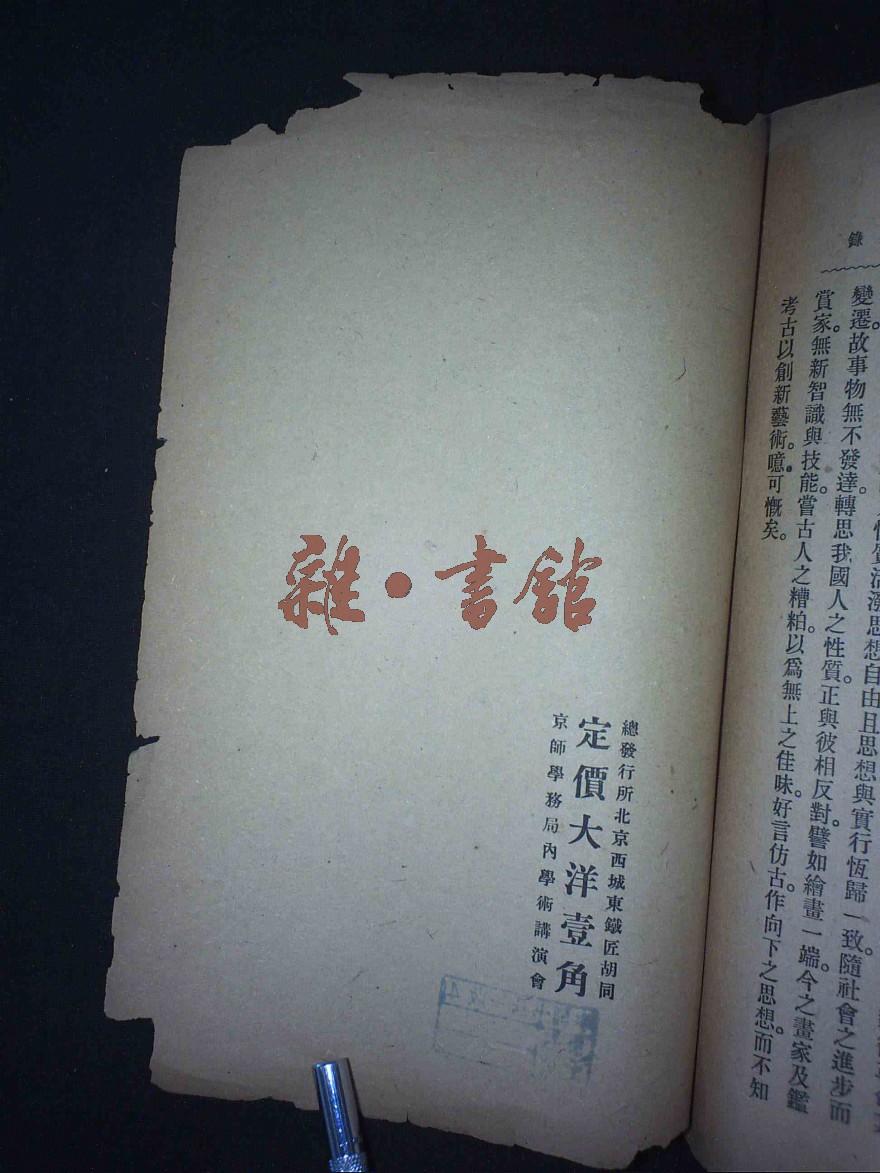 錄
性質活潑思想自由且思想與實行恆歸一致。隨社會之進步而
變遷。故事物無不發達。轉思我國人之性質。正與彼相反對。譬如繪畫一端。今之畫家及鑑
賞家。無新智識與技能。嘗古人之糟粕。以爲無上之佳味。好言仿古。作向下之思想。而不知
考古以創新藝術。噫。可慨矣。
雜·書館
總發行所北京西城東鐵匠胡同
定價大洋壹角
京師學務局內學術講演會